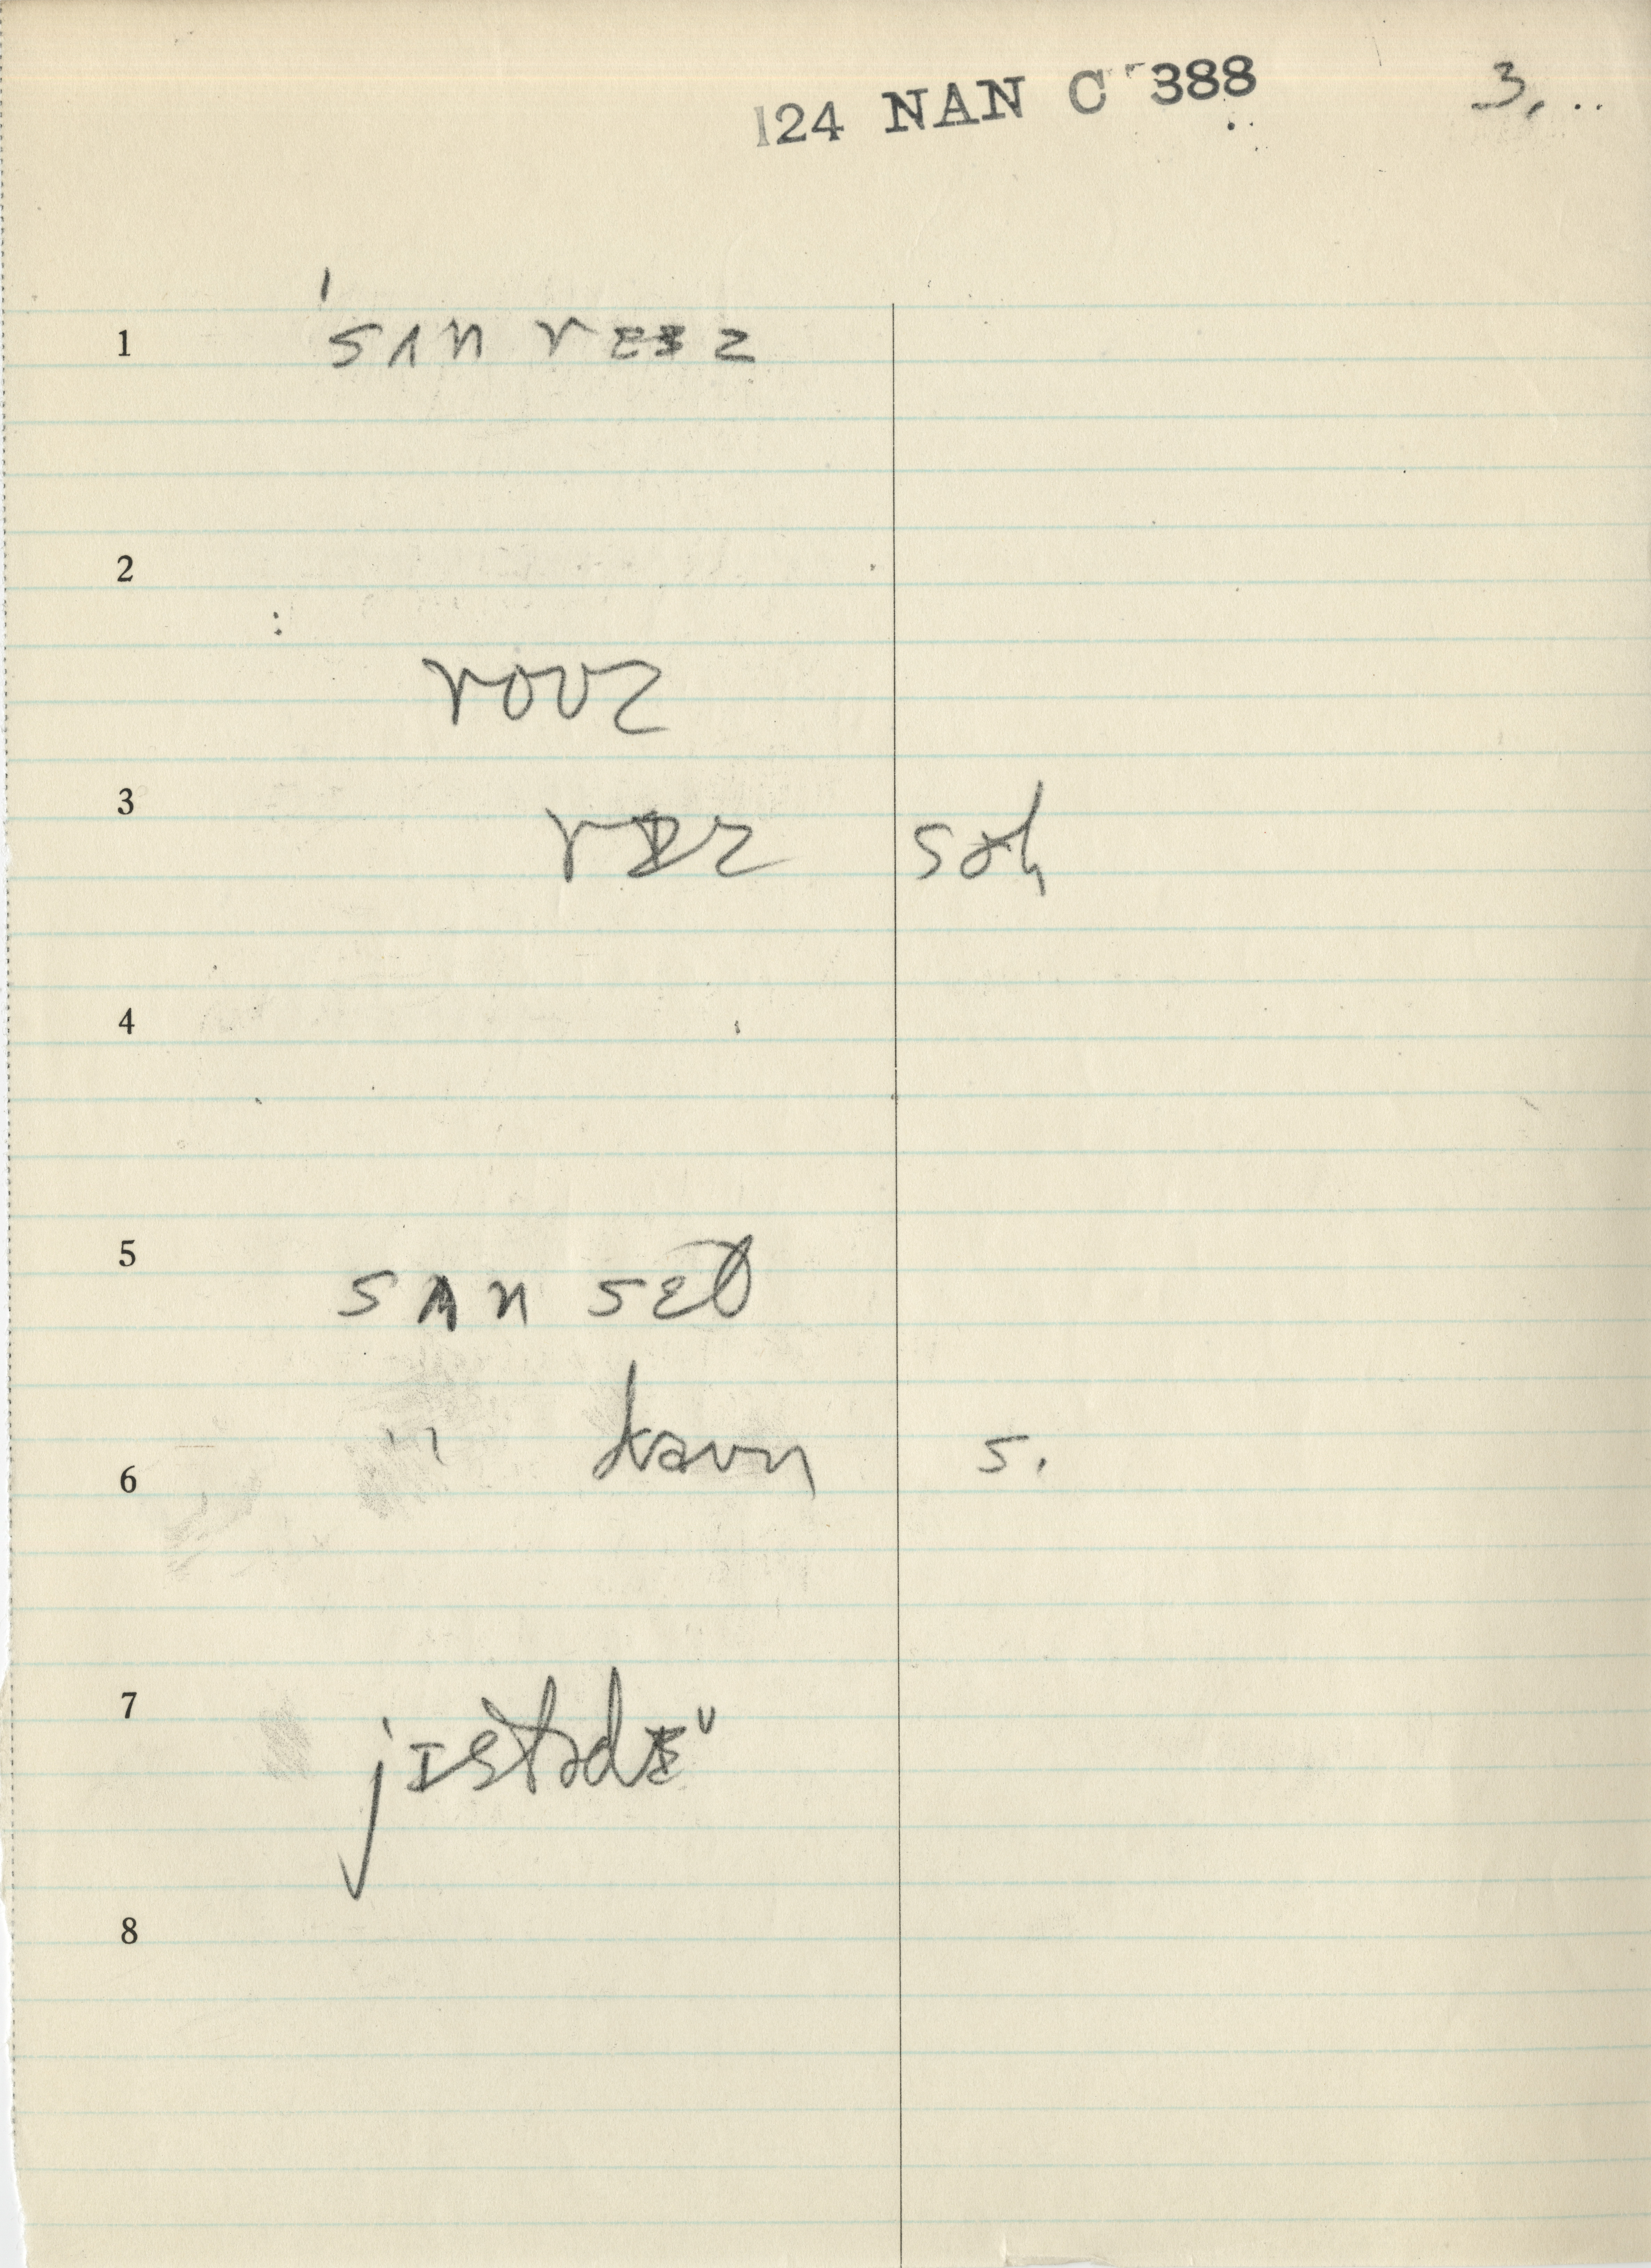 124 NAN C 388 3.
1 sʌn rɛɪz
2
roʊz
3 rɪz səh
4
5 sʌn sɛt
6 " daʊn s.
7 jɪstədɪ
8